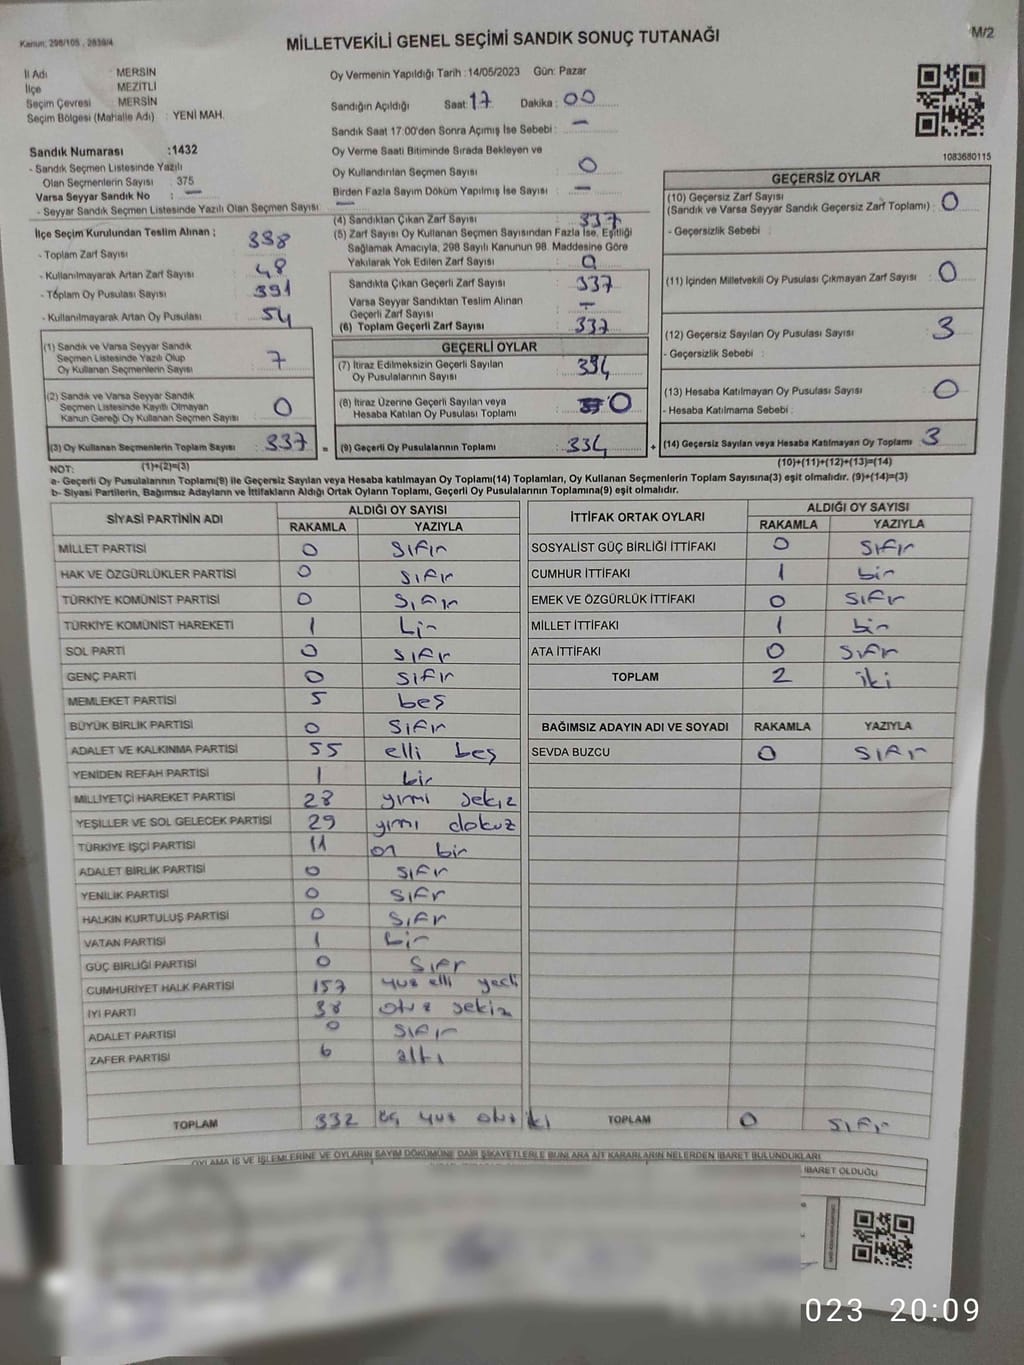 Kanun: 298/105 , 2839/4
MİLLETVEKİLİ GENEL SEÇİMİ SANDIK SONUÇ TUTANAĞI
M/2
İl Adı : MERSİN
İlçe : MEZİTLİ
Seçim Çevresi : MERSİN
Seçim Bölgesi (Mahalle Adı) : YENİ MAH.
Sandık Numarası :1432
- Sandık Seçmen Listesinde Yazılı
Olan Seçmenlerin Sayısı : 375
Varsa Seyyar Sandık No : —
- Seyyar Sandık Seçmen Listesinde Yazılı Olan Seçmen Sayısı : —
Oy Vermenin Yapıldığı Tarih : 14/05/2023 Gün: Pazar
Sandığın Açıldığı Saat: 17 Dakika : 00
Sandık Saat 17:00'den Sonra Açımış İse Sebebi : —
Oy Verme Saati Bitiminde Sırada Bekleyen ve
Oy Kullandırılan Seçmen Sayısı : 0
Birden Fazla Sayım Döküm Yapılmış İse Sayısı : —
1083680115
İlçe Seçim Kurulundan Teslim Alınan ;
- Toplam Zarf Sayısı : 388
- Kullanılmayarak Artan Zarf Sayısı : 48
- Toplam Oy Pusulası Sayısı : 391
- Kullanılmayarak Artan Oy Pusulası : 54
(1) Sandık ve Varsa Seyyar Sandık
Seçmen Listesinde Yazılı Olup
Oy Kullanan Seçmenlerin Sayısı : 7
(2) Sandık ve Varsa Seyyar Sandık
Seçmen Listesinde Kayıtlı Olmayan
Kanun Gereği Oy Kullanan Seçmen Sayısı : 0
(3) Oy Kullanan Seçmenlerin Toplam Sayısı : 337
(4) Sandıktan Çıkan Zarf Sayısı : 337
(5) Zarf Sayısı Oy Kullanan Seçmen Sayısından Fazla İse, Eşitliği
Sağlamak Amacıyla, 298 Sayılı Kanunun 98. Maddesine Göre
Yakılarak Yok Edilen Zarf Sayısı : 0
Sandıkta Çıkan Geçerli Zarf Sayısı : 337
Varsa Seyyar Sandıktan Teslim Alınan
Geçerli Zarf Sayısı : —
(6) Toplam Geçerli Zarf Sayısı : 337
GEÇERLİ OYLAR
(7) İtiraz Edilmeksizin Geçerli Sayılan
Oy Pusulalarının Sayısı : 334
(8) İtiraz Üzerine Geçerli Sayılan veya
Hesaba Katılan Oy Pusulası Toplamı : 0
= (9) Geçerli Oy Pusulalarının Toplamı : 334
GEÇERSİZ OYLAR
(10) Geçersiz Zarf Sayısı
(Sandık ve Varsa Seyyar Sandık Geçersiz Zarf Toplamı) : 0
- Geçersizlik Sebebi :
(11) İçinden Milletvekili Oy Pusulası Çıkmayan Zarf Sayısı : 0
(12) Geçersiz Sayılan Oy Pusulası Sayısı : 3
- Geçersizlik Sebebi :
(13) Hesaba Katılmayan Oy Pusulası Sayısı : 0
- Hesaba Katılmama Sebebi :
+ (14) Geçersiz Sayılan veya Hesaba Katılmayan Oy Toplamı : 3
NOT: (1)+(2)=(3) (10)+(11)+(12)+(13)=(14)
a- Geçerli Oy Pusulalarının Toplamı(9) ile Geçersiz Sayılan veya Hesaba katılmayan Oy Toplamı(14) Toplamları, Oy Kullanan Seçmenlerin Toplam Sayısına(3) eşit olmalıdır. (9)+(14)=(3)
b- Siyasi Partilerin, Bağımsız Adayların ve İttifakların Aldığı Ortak Oyların Toplamı, Geçerli Oy Pusulalarının Toplamına(9) eşit olmalıdır.
SİYASİ PARTİNİN ADI ALDIĞI OY SAYISI
RAKAMLA YAZIYLA
MİLLET PARTİSİ 0 sıfır
HAK VE ÖZGÜRLÜKLER PARTİSİ 0 sıfır
TÜRKİYE KOMÜNİST PARTİSİ 0 sıfır
TÜRKİYE KOMÜNİST HAREKETİ 1 bir
SOL PARTİ 0 sıfır
GENÇ PARTİ 0 sıfır
MEMLEKET PARTİSİ 5 beş
BÜYÜK BİRLİK PARTİSİ 0 sıfır
ADALET VE KALKINMA PARTİSİ 55 elli beş
YENİDEN REFAH PARTİSİ 1 bir
MİLLİYETÇİ HAREKET PARTİSİ 28 yirmi sekiz
YEŞİLLER VE SOL GELECEK PARTİSİ 29 yirmi dokuz
TÜRKİYE İŞÇİ PARTİSİ 11 on bir
ADALET BİRLİK PARTİSİ 0 sıfır
YENİLİK PARTİSİ 0 sıfır
HALKIN KURTULUŞ PARTİSİ 0 sıfır
VATAN PARTİSİ 1 bir
GÜÇ BİRLİĞİ PARTİSİ 0 sıfır
CUMHURİYET HALK PARTİSİ 157 yuz elli yedi
İYİ PARTİ 38 otuz sekiz
ADALET PARTİSİ 0 sıfır
ZAFER PARTİSİ 6 altı
TOPLAM 332 üç yuz otuz iki
İTTİFAK ORTAK OYLARI ALDIĞI OY SAYISI
RAKAMLA YAZIYLA
SOSYALİST GÜÇ BİRLİĞİ İTTİFAKI 0 sıfır
CUMHUR İTTİFAKI 1 bir
EMEK VE ÖZGÜRLÜK İTTİFAKI 0 sıfır
MİLLET İTTİFAKI 1 bir
ATA İTTİFAKI 0 sıfır
TOPLAM 2 iki
BAĞIMSIZ ADAYIN ADI VE SOYADI RAKAMLA YAZIYLA
SEVDA BUZCU 0 sıfır
TOPLAM 0 sıfır
OYLAMA İŞ VE İŞLEMLERİNE VE OYLARIN SAYIM DÖKÜMÜNE DAİR ŞİKAYETLERLE BUNLARA AİT KARARLARIN NELERDEN İBARET BULUNDUKLARI
İBARET OLDUĞU
023 20:09